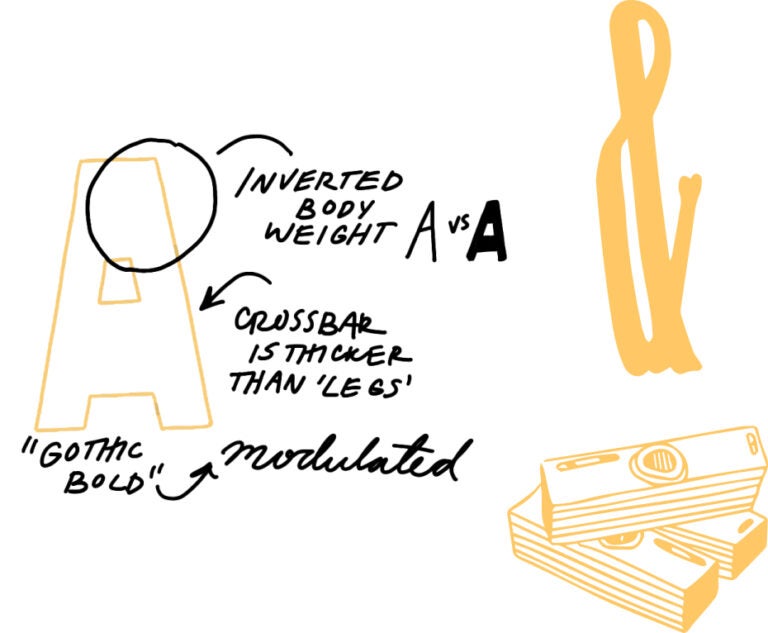 A
INVERTED
BODY
WEIGHT A vs A
CROSSBAR
IS THICKER
THAN 'LEGS'
"GOTHIC
BOLD" modulated
&